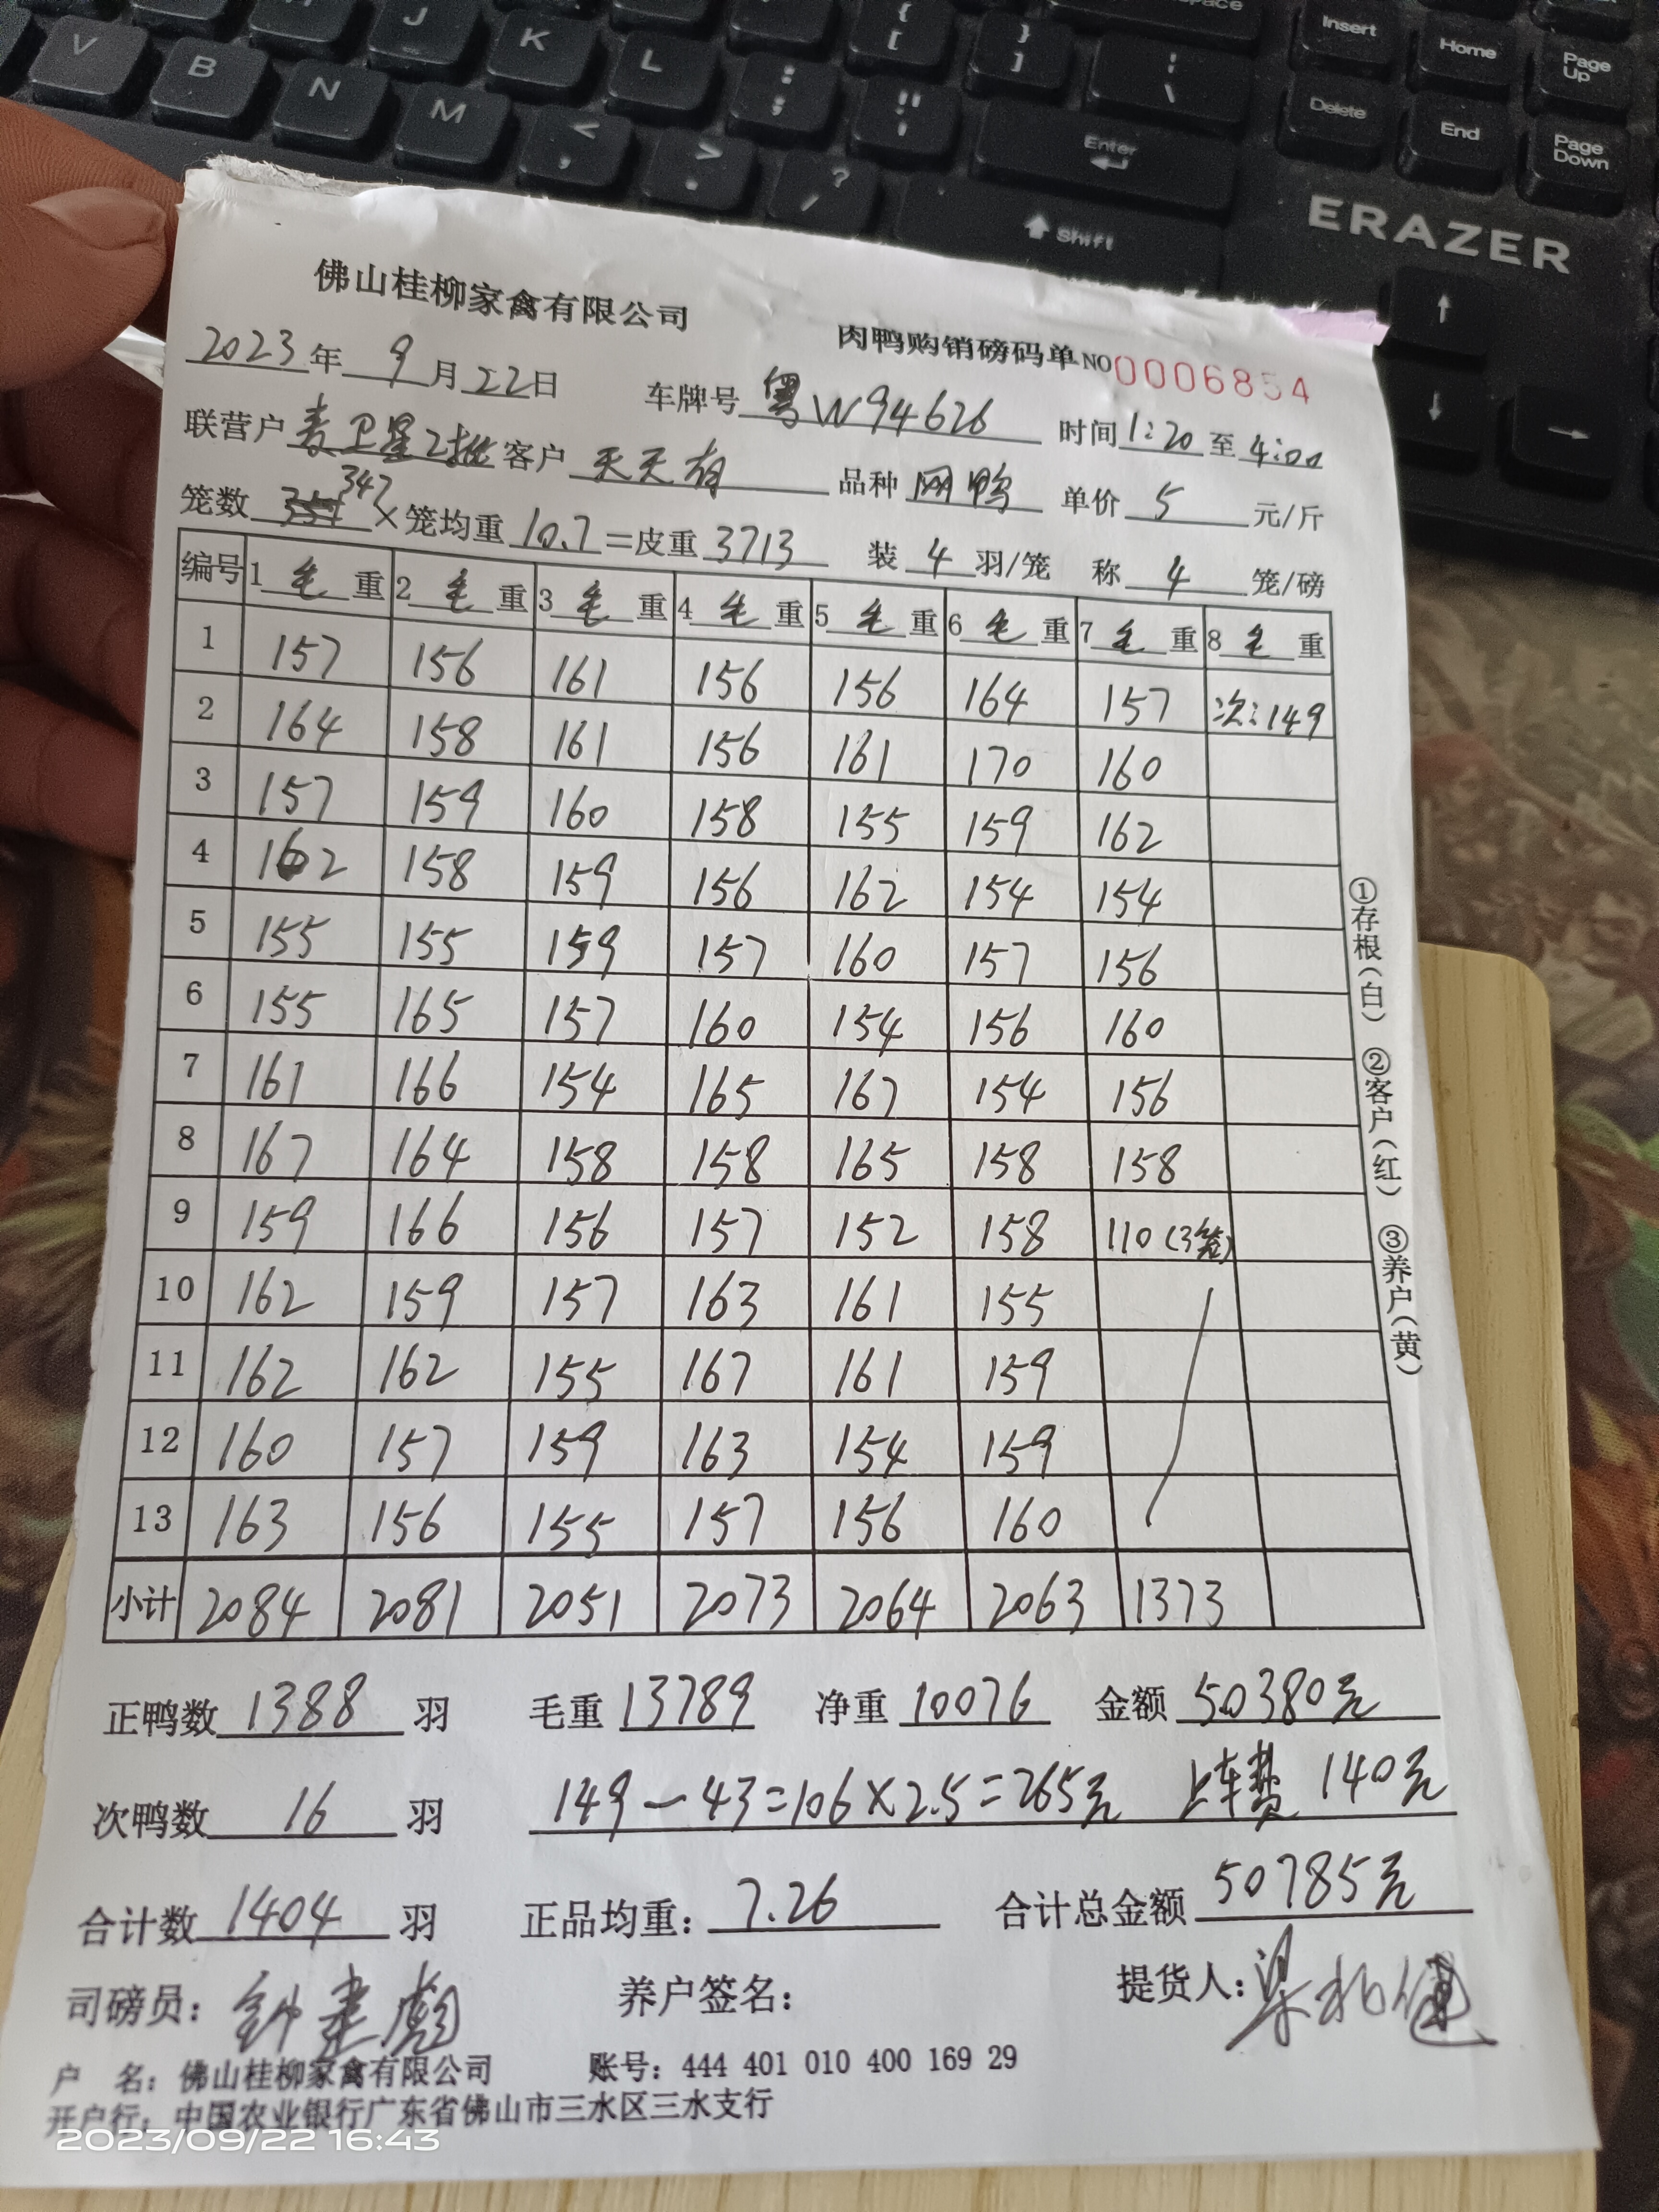 V B N J M K L < , > . ? / { [ } ] : ; " ' | \ Enter Shift
Insert Home Page Up
Delete End Page Down
ERAZER
佛山桂柳家禽有限公司 肉鸭购销磅码单 NO 0006854
2023年 9月22日 车牌号 粤W94626 时间 1:20 至 4:00
联营户 麦卫星2批 客户 天天有 品种 网鸭 单价 5 元/斤
笼数 347 × 笼均重 10.7 = 皮重 3713 装 4 羽/笼 称 4 笼/磅
编号 1 毛 重 2 毛 重 3 毛 重 4 毛 重 5 毛 重 6 毛 重 7 毛 重 8 毛 重
1 157 156 161 156 156 164 157 次:149
2 164 158 161 156 161 170 160
3 157 159 160 158 155 159 162
4 162 158 159 156 162 154 154
5 155 155 159 157 160 157 156
6 155 165 157 160 154 156 160
7 161 166 154 165 167 154 156
8 167 164 158 158 165 158 158
9 159 166 156 157 152 158 110(3笼)
10 162 159 157 163 161 155
11 162 162 155 167 161 159
12 160 157 159 163 154 159
13 163 156 155 157 156 160
小计 2084 2081 2051 2073 2064 2063 1373
①存根(白) ②客户(红) ③养户(黄)
正鸭数 1388 羽 毛重 13789 净重 10076 金额 50380元
次鸭数 16 羽 149-43=106×2.5=265元 上车费 140元
合计数 1404 羽 正品均重: 7.26 合计总金额 50785元
司磅员: 养户签名: 提货人:
户 名: 佛山桂柳家禽有限公司 账号: 444 401 010 400 169 29
开户行: 中国农业银行广东省佛山市三水区三水支行
2023/09/22 16:43